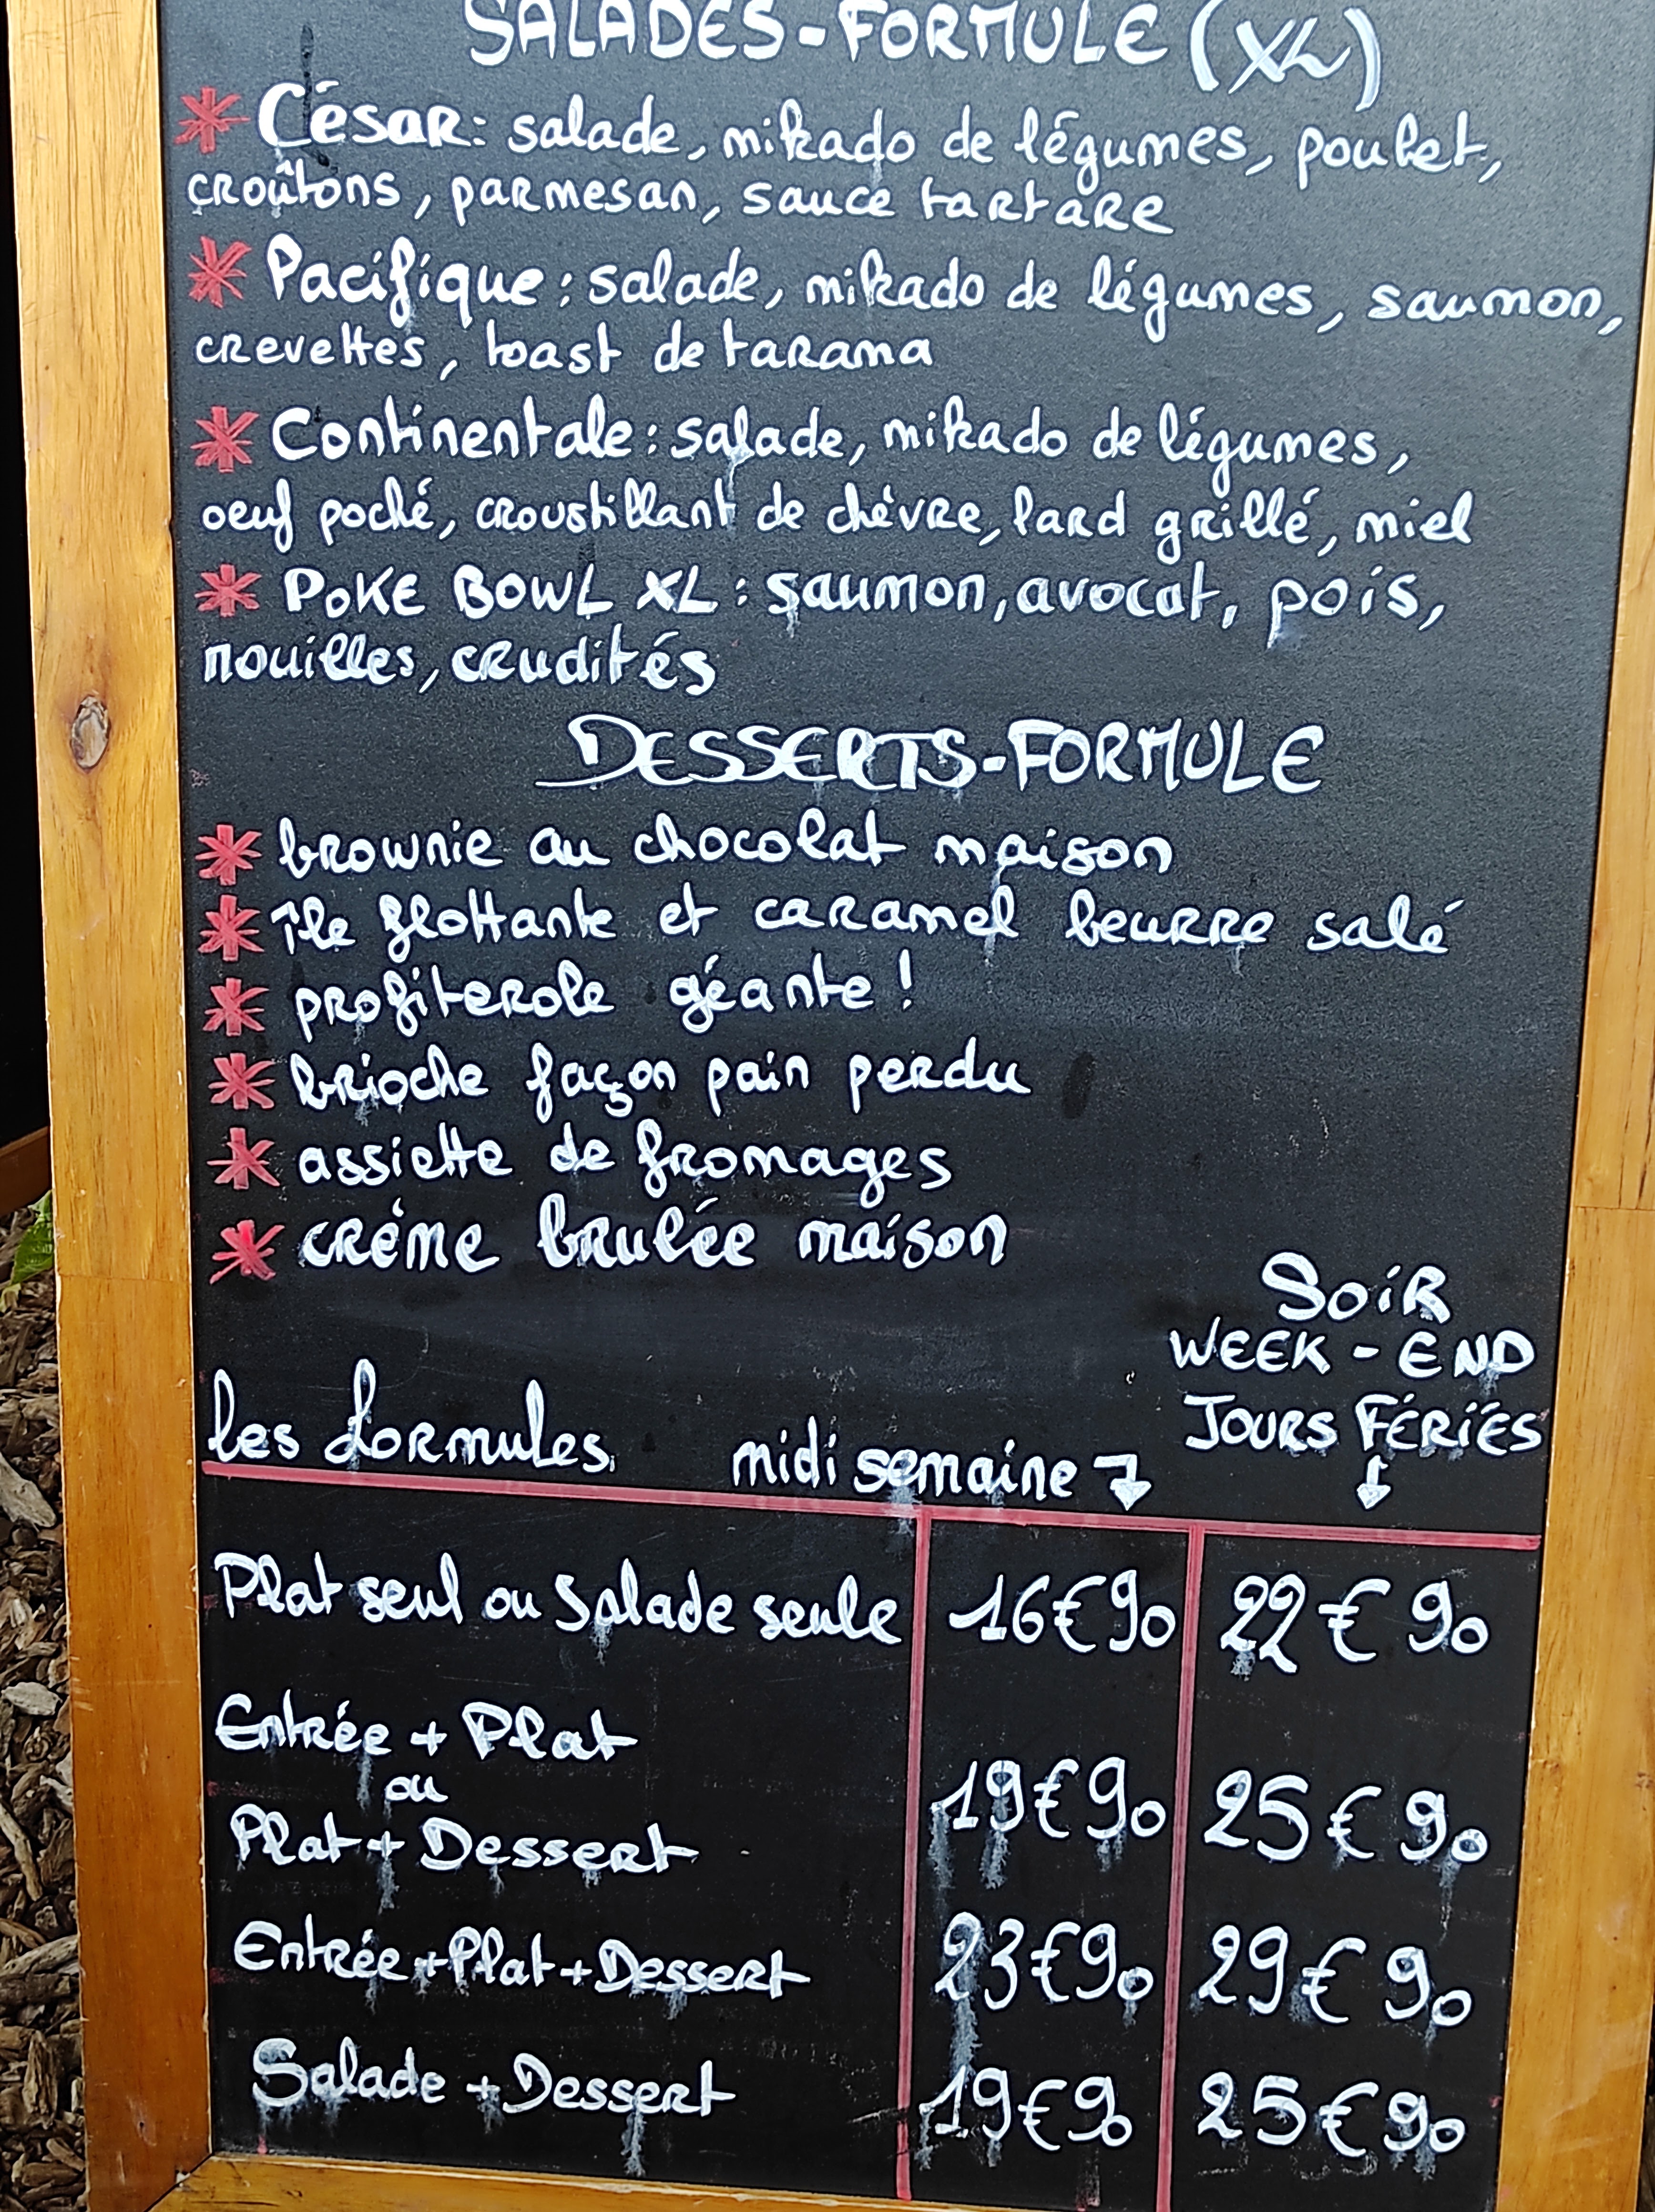 SALADES-FORMULE (XL)
* César: salade, mikado de légumes, poulet,
croûtons, parmesan, sauce tartare
* Pacifique: salade, mikado de légumes, saumon,
crevettes, toast de tarama
* Continentale: salade, mikado de légumes,
oeuf poché, croustillant de chèvre, lard grillé, miel
* POKE BOWL XL: saumon, avocat, pois,
nouilles, crudités
DESSERTS-FORMULE
* brownie au chocolat maison
* île flottante et caramel beurre salé
* profiterole géante!
* brioche façon pain perdu
* assiette de fromages
* crème brulée maison
SOIR
WEEK-END
JOURS FÉRIÉS
les formules midi semaine
Plat seul ou Salade seule 16€90 22€90
Entrée + Plat
ou
19€90 25€90
Plat + Dessert
Entrée+Plat+Dessert 23€90 29€90
Salade + Dessert 19€90 25€90